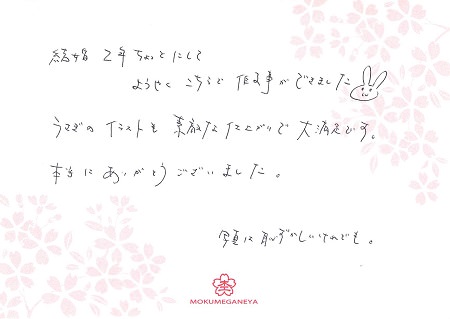 結婚 2年ちょっとにして
ようやく こちらで 作る事ができました
うさぎの イラストも 素敵な仕上がりで 大満足です。
本当に ありがとう ございました。
写真は 恥ずかしいけれども。
MOKUMEGANEYA